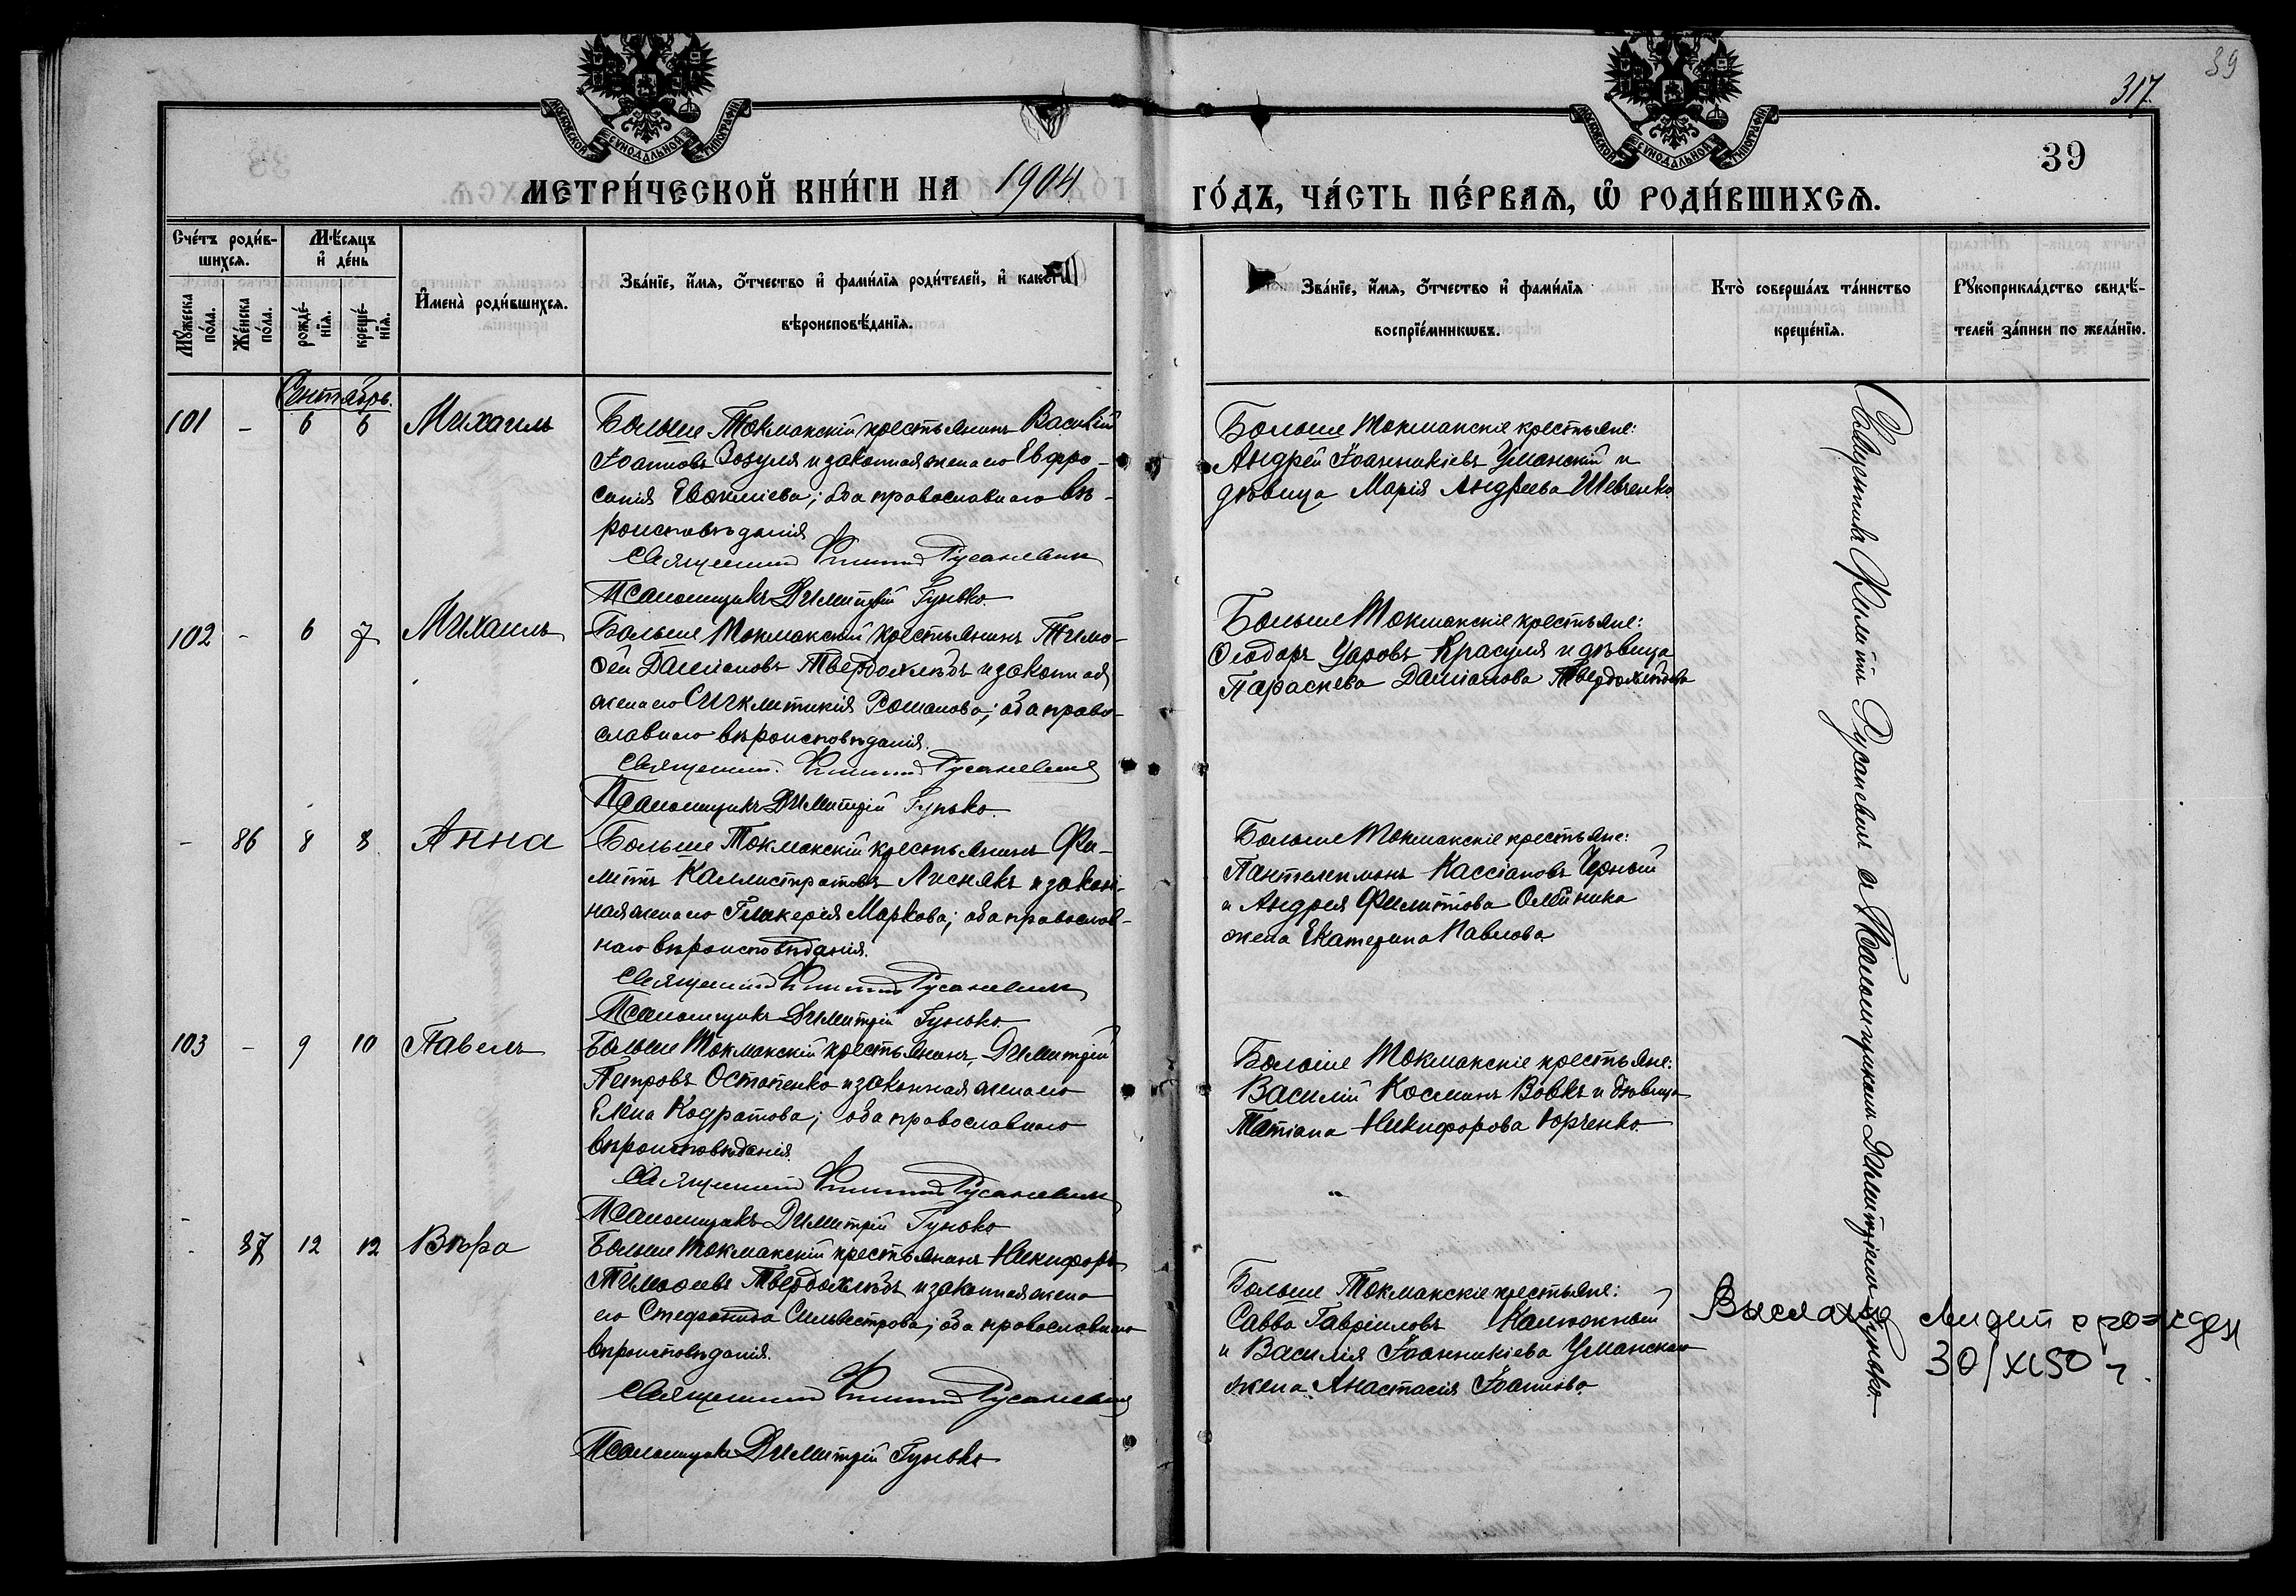 39
317.
МОСКОВСКОЙ СѴНОДАЛЬНОЙ ТИПОГРАФІИ
МОСКОВСКОЙ СѴНОДАЛЬНОЙ ТИПОГРАФІИ
39
МЕТРИ́ЧЕСКОЙ КНИ́ГИ НА 1904
ГО́ДЪ, ЧА́СТЬ ПЕ́РВАѦ, Ѡ҆ РОДИ́ВШИХСѦ.
Сче́тъ роди́в-
шихсѧ.
Мꙋ́жеска по́ла.
Же́нска по́ла.
Мѣ́сѧцъ
и҆ де́нь
рожде́-
нїѧ.
креще́-
нїѧ.
И҆мена̀ роди́вшихсѧ.
Зва́нїе, и҆́мѧ, ѻ҆́тчество и҆ фами́лїѧ роди́телей, и҆ како́гѡ
вѣроисповѣ́данїѧ.
Зва́нїе, и҆́мѧ, ѻ҆́тчество и҆ фами́лїѧ
воспрїе́мникѡвъ.
Кто̀ соверша́лъ та́инство
креще́нїѧ.
Рꙋкоприкла́дство свидѣ́-
телей за́писи по жела́нїю.
Сентябрь.
101 - 6 6 Михаилъ
Больше Токмакскій крестьянинъ Василій
Іоанновъ Зозуля и законная жена его Евфро-
синія Евфиміева; оба православнаго вѣ-
роисповѣданія
Священникъ Филиппъ Русаневичъ
Псаломщикъ Димитрій Гунько.
Больше Токмакскіе крестьяне:
Андрей Іоанникіевъ Уманскій и
дѣвица Марія Андреева Шевченко
102 - 6 7 Михаилъ
Больше Токмакскій крестьянинъ Тимо-
ѳей Даміановъ Твердохлѣбъ и законная
жена его Синклитикія Романова; оба право-
славнаго вѣроисповѣданія.
Священникъ Филиппъ Русаневичъ
Псаломщикъ Димитрій Гунько.
Больше Токмакскіе крестьяне:
Ѳеодоръ Уаровъ Красуля и дѣвица
Параскева Даміанова Твердохлѣбова
- 86 8 8 Анна
Больше Токмакскій крестьянинъ Фи-
липпъ Каллистратовъ Лиснякъ и закон-
ная жена его Гликерія Маркова; оба православ-
наго вѣроисповѣданія.
Священникъ Филиппъ Русаневичъ
Псаломщикъ Димитрій Гунько
Больше Токмакскіе крестьяне:
Пантелеимонъ Кассіановъ Черный
и Андрея Филиппова Олейника
жена Екатерина Павлова
103 - 9 10 Павелъ
Больше Токмакскій крестьянинъ Димитрій
Петровъ Остапенко и законная жена его
Елена Кодратова; оба православнаго
вѣроисповѣданія.
Священникъ Филиппъ Русаневичъ
Псаломщикъ Димитрій Гунько
Больше Токмакскіе крестьяне:
Василій Косминъ Вовкъ и дѣвица
Татіана Никифорова Юрченко
- 87 12 12 Вѣра
Больше Токмакскій крестьянинъ Никифоръ
Тимоѳеевъ Твердохлѣбъ и законная жена
его Стефанида Сильвестрова; оба православнаго
вѣроисповѣданія.
Священникъ Филиппъ Русаневичъ
Псаломщикъ Димитрій Гунько
Больше Токмакскіе крестьяне:
Савва Гавріиловъ Калюжный
и Василія Іоанникіева Уманскаго
жена Анастасія Іоаннова
Священникъ Филиппъ Русаневичъ съ Псаломщикомъ Димитріемъ Гунько.
30/XI 50 г.